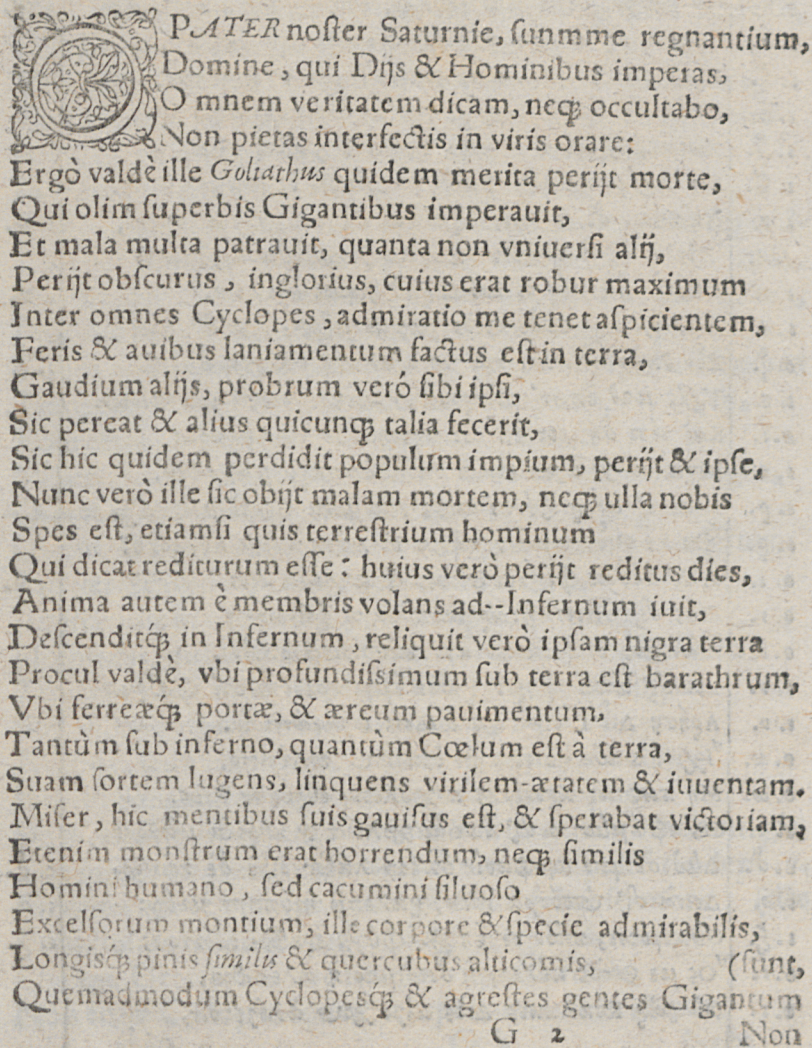 O PATER noſter Saturnie, ſunmme regnantium,
Domine, qui Dijs & Hominibus imperas,
O mnem veritatem dicam, neqꝫ occultabo,
Non pietas interfectis in viris orare:
Ergò valdè ille Goliathus quidem merita perijt morte,
Qui olim ſuperbis Gigantibus imperauit,
Et mala multa patrauit, quanta non vniuerſi alij,
Perijt obſcurus, inglorius, cuius erat robur maximum
Inter omnes Cyclopes, admiratio me tenet aſpicientem,
Feris & auibus laniamentum factus eſt in terra,
Gaudium alijs, probrum veró ſibi ipſi,
Sic pereat & alius quicunqꝫ talia fecerit,
Sic hic quidem perdidit populum impium, perijt & ipſe,
Nunc verò ille ſic obijt malam mortem, neqꝫ ulla nobis
Spes eſt, etiamſi quis terreſtrium hominum
Qui dicat rediturum eſſe: huius verò perijt reditus dies,
Anima autem è membris volans ad--Infernum iuit,
Deſcenditq́ꝫ in Infernum, reliquit verò ipſam nigra terra
Procul valdè, vbi profundiſsimum ſub terra eſt barathrum,
Vbi ferreæq́ꝫ portæ, & æreum pauimentum,
Tantùm ſub inferno, quantùm Cœlum eſt à terra,
Suam ſortem lugens, linquens virilem-ætatem & iuuentam.
Miſer, hic mentibus ſuis gauiſus eſt, & ſperabat victoriam,
Etenim monſtrum erat horrendum, neqꝫ ſimilis
Homini humano, ſed cacumini ſiluoſo
Excelſorum montium, ille corpore & ſpecie admirabilis,
Longisq́ꝫ pinis ſimilis & quercubus alticomis, (ſunt,
Quemadmodum Cyclopesq́ꝫ & agreſtes gentes Gigantum
G 2 Non